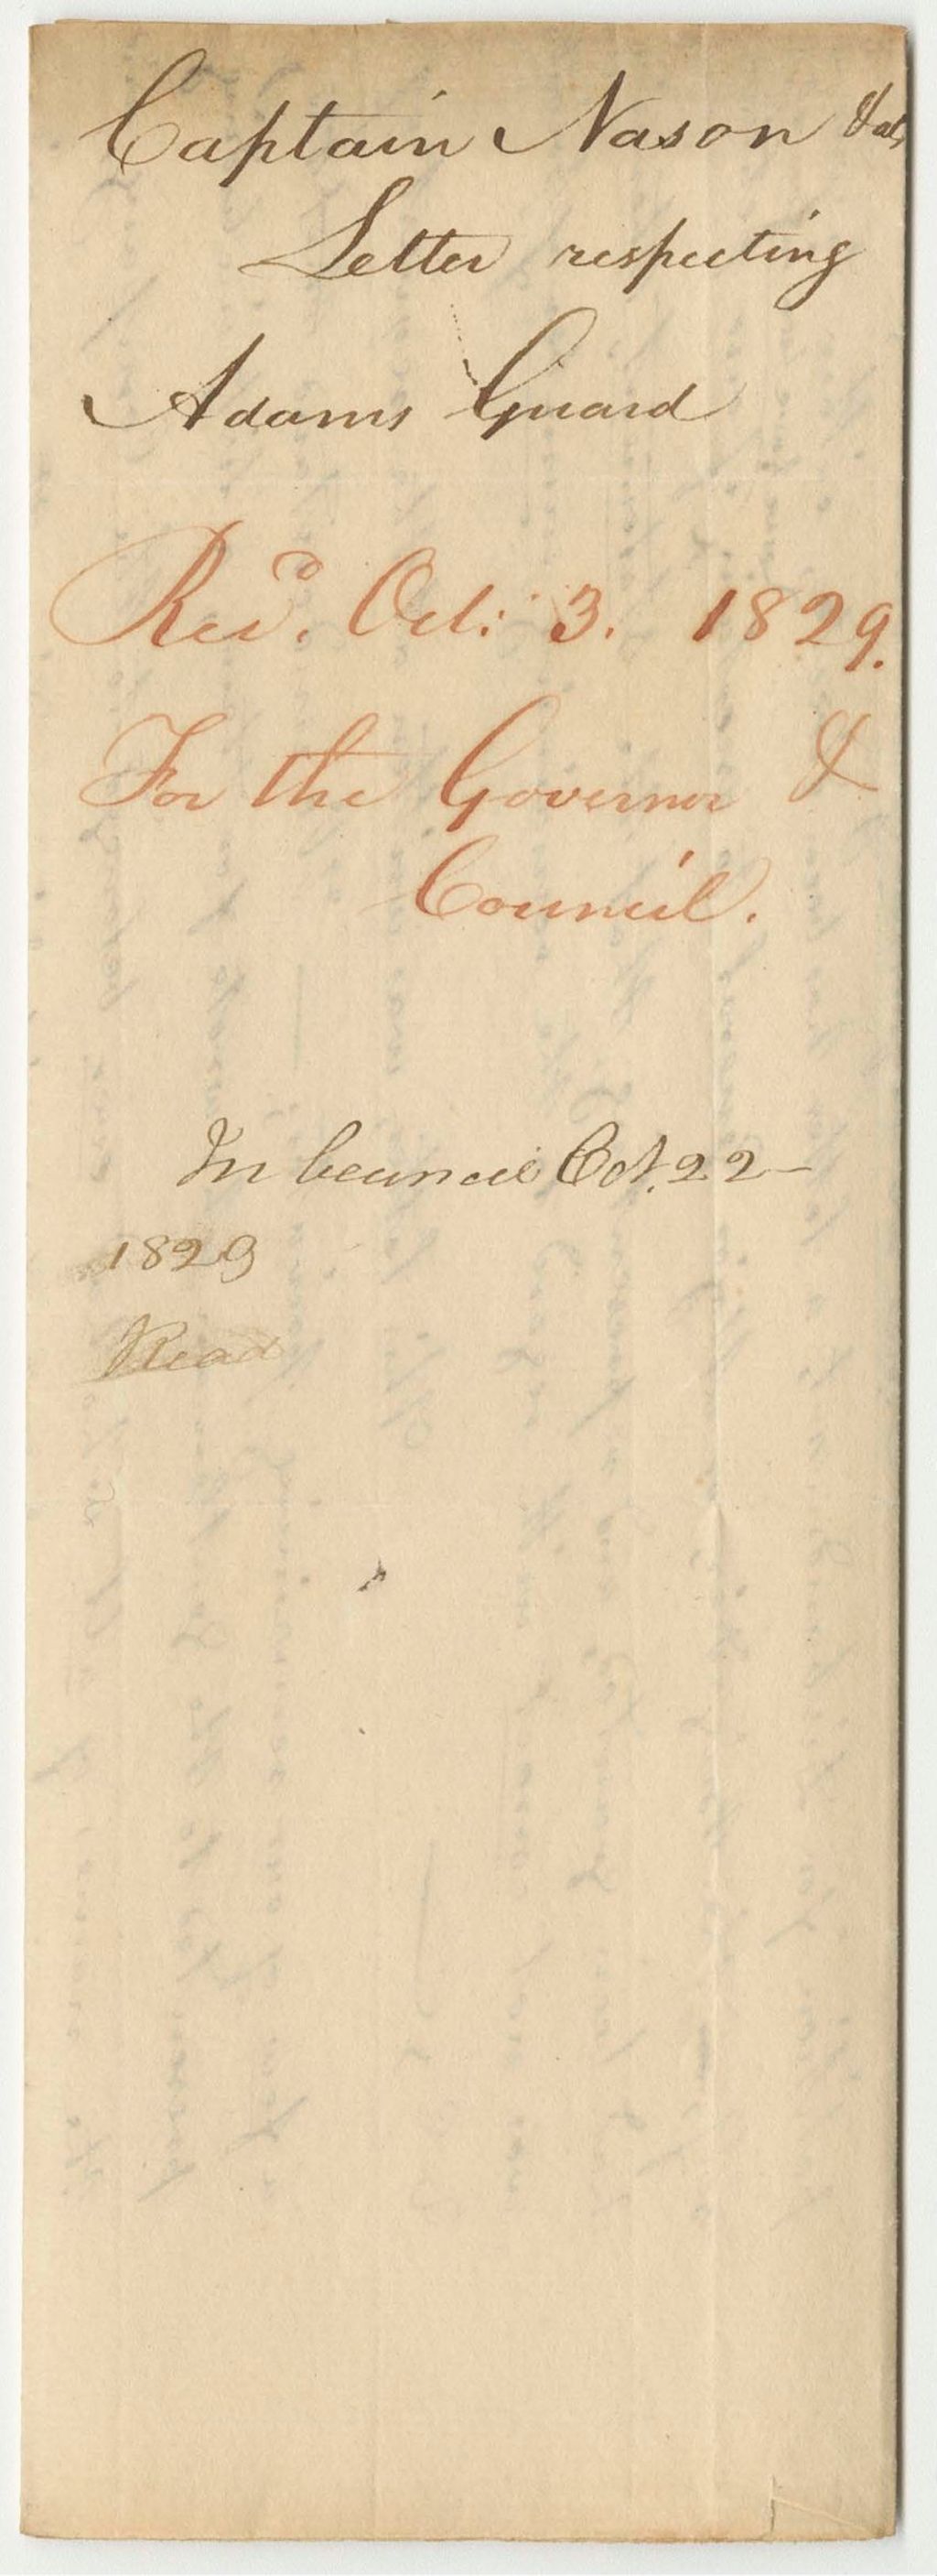 Captain Nason & als
Letter respecting
Adams Guard
Recd. Oct: 3. 1829.
For the Governor &
Council.
In Council Oct. 22 –
1829
Read